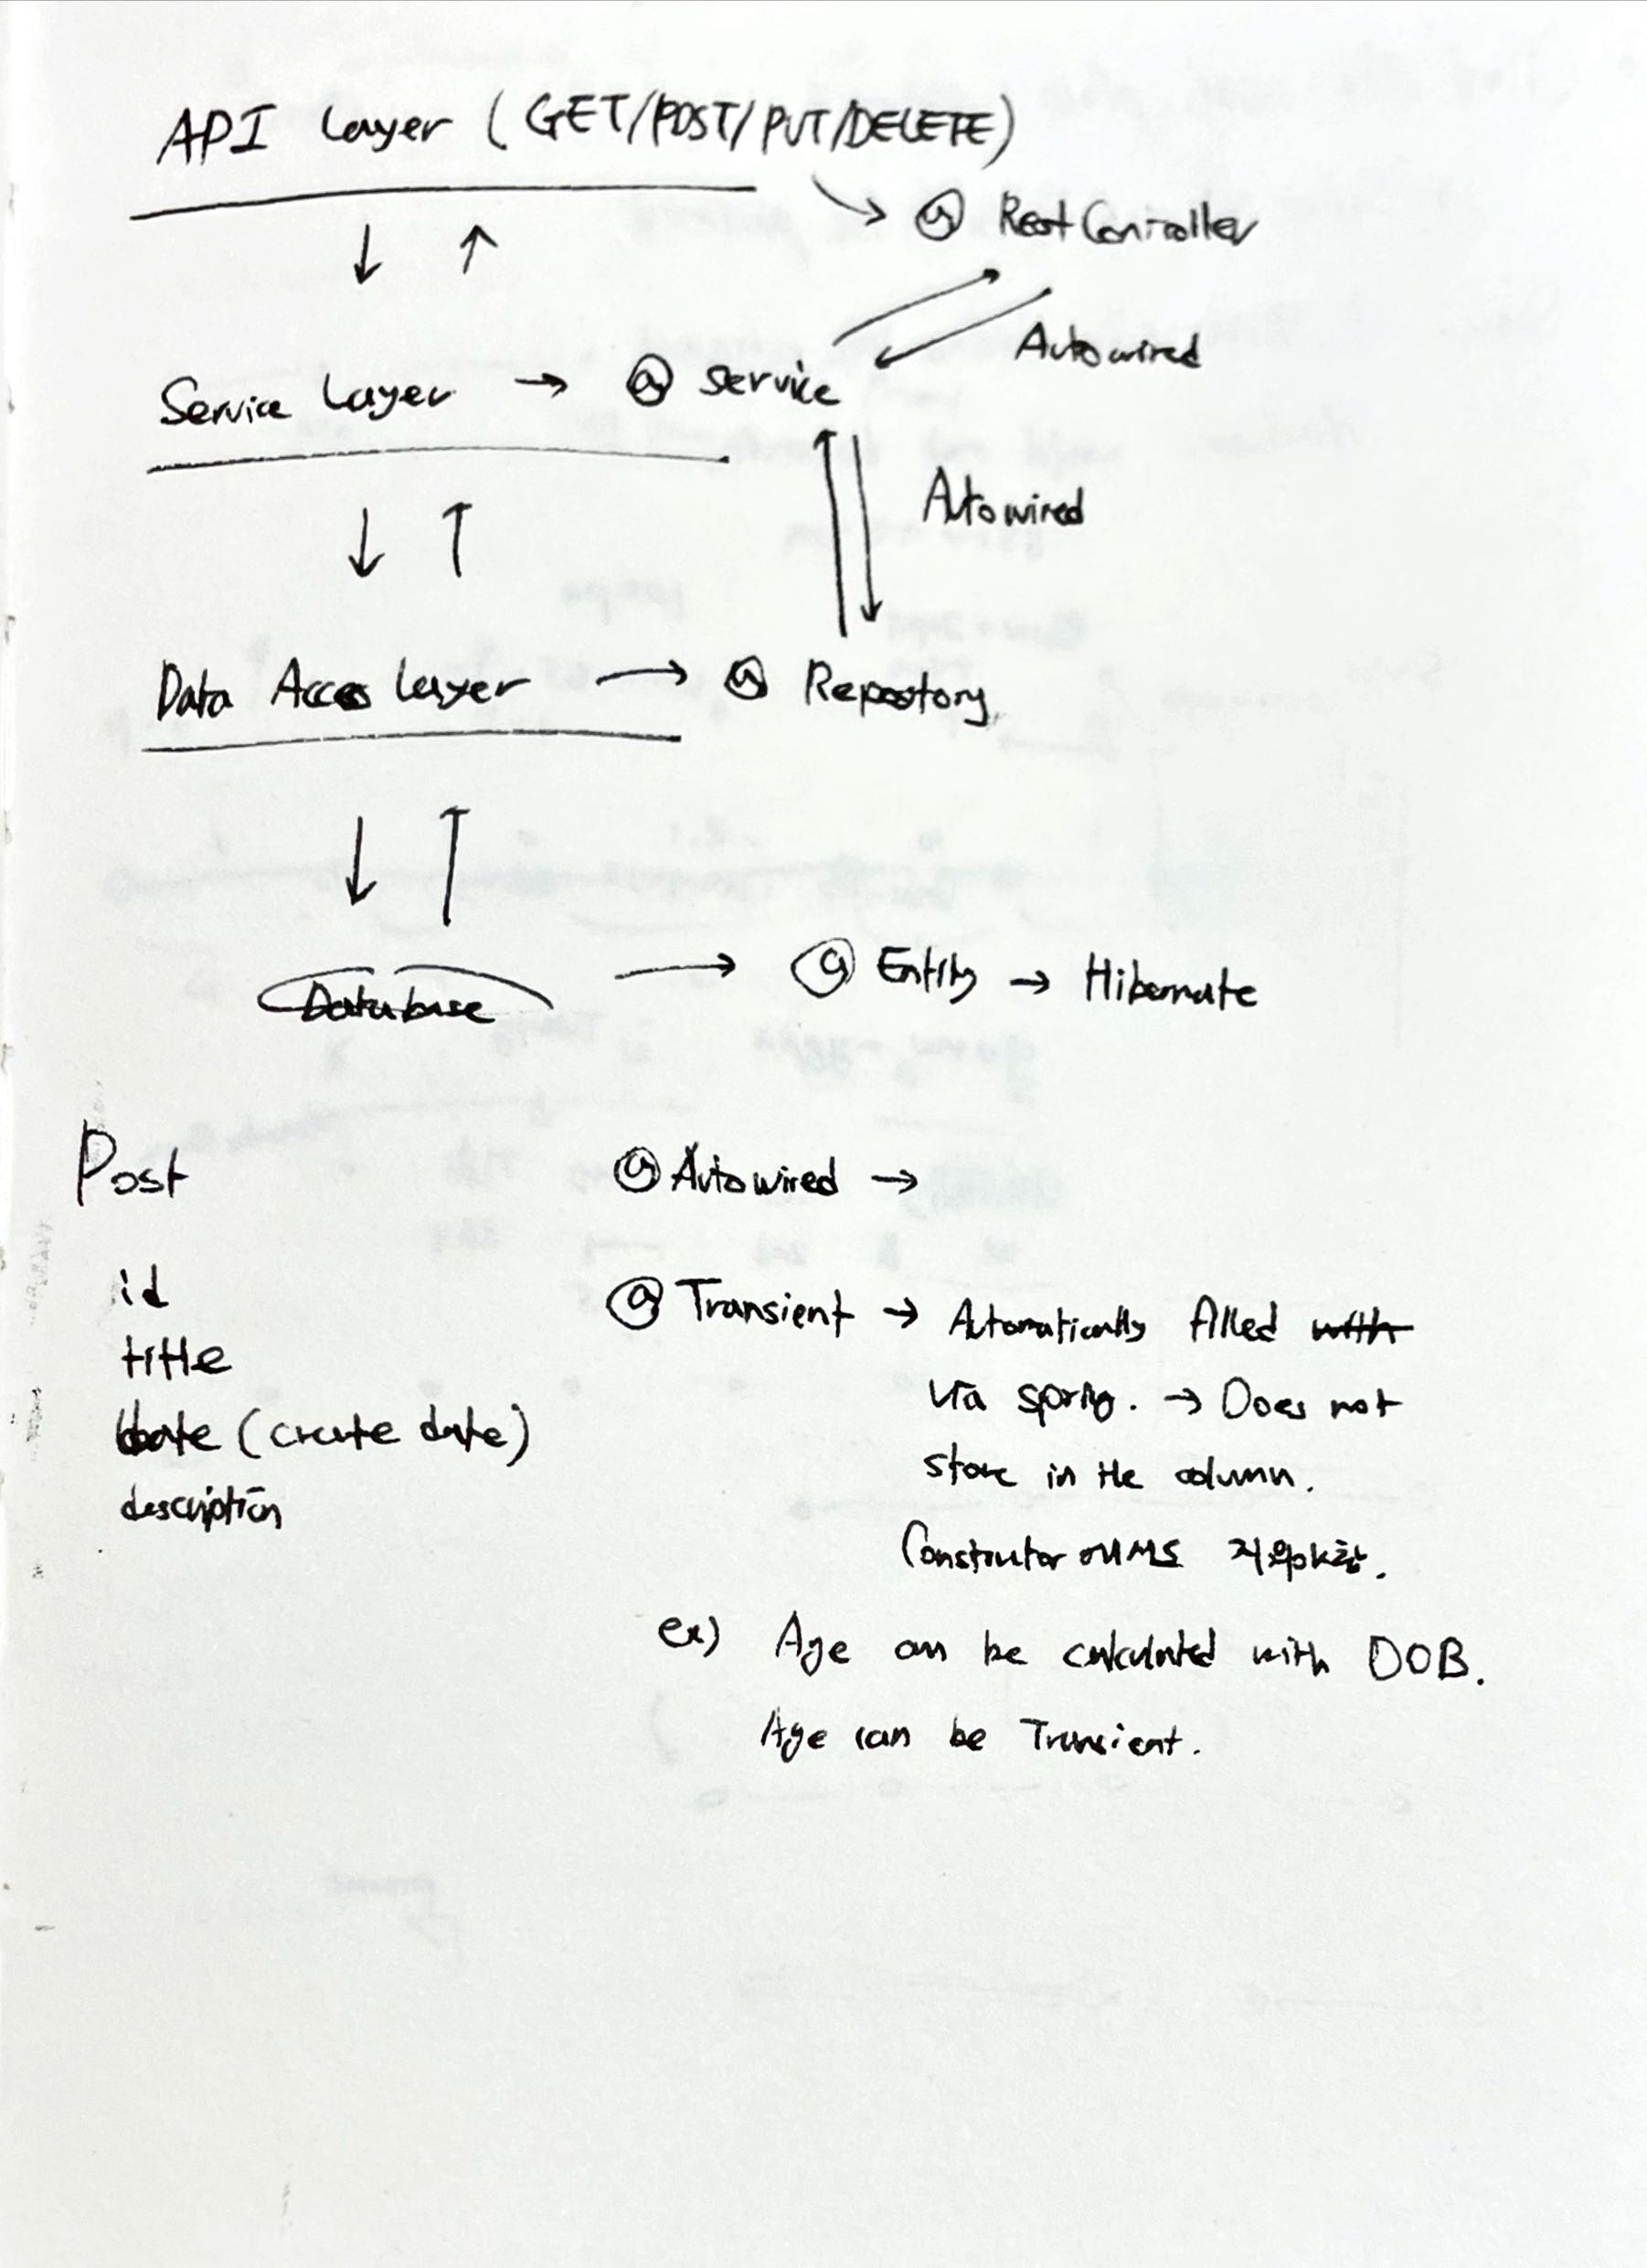 API Layer (GET/POST/PUT/DELETE)
↓ ↑ → @ RestController
Autowired
Service Layer → @ Service
↓ ↑ Autowired
Data Acces Layer → @ Repository
↓ ↑
Database → @ Entity → Hibernate
Post
id
title
date (create date)
description
@ Autowired →
@ Transient → Automatically filled with
via spring. → Does not
store in the column.
Constructor 에서도 지워야함.
ex) Age can be calculated with DOB.
Age can be Transient.